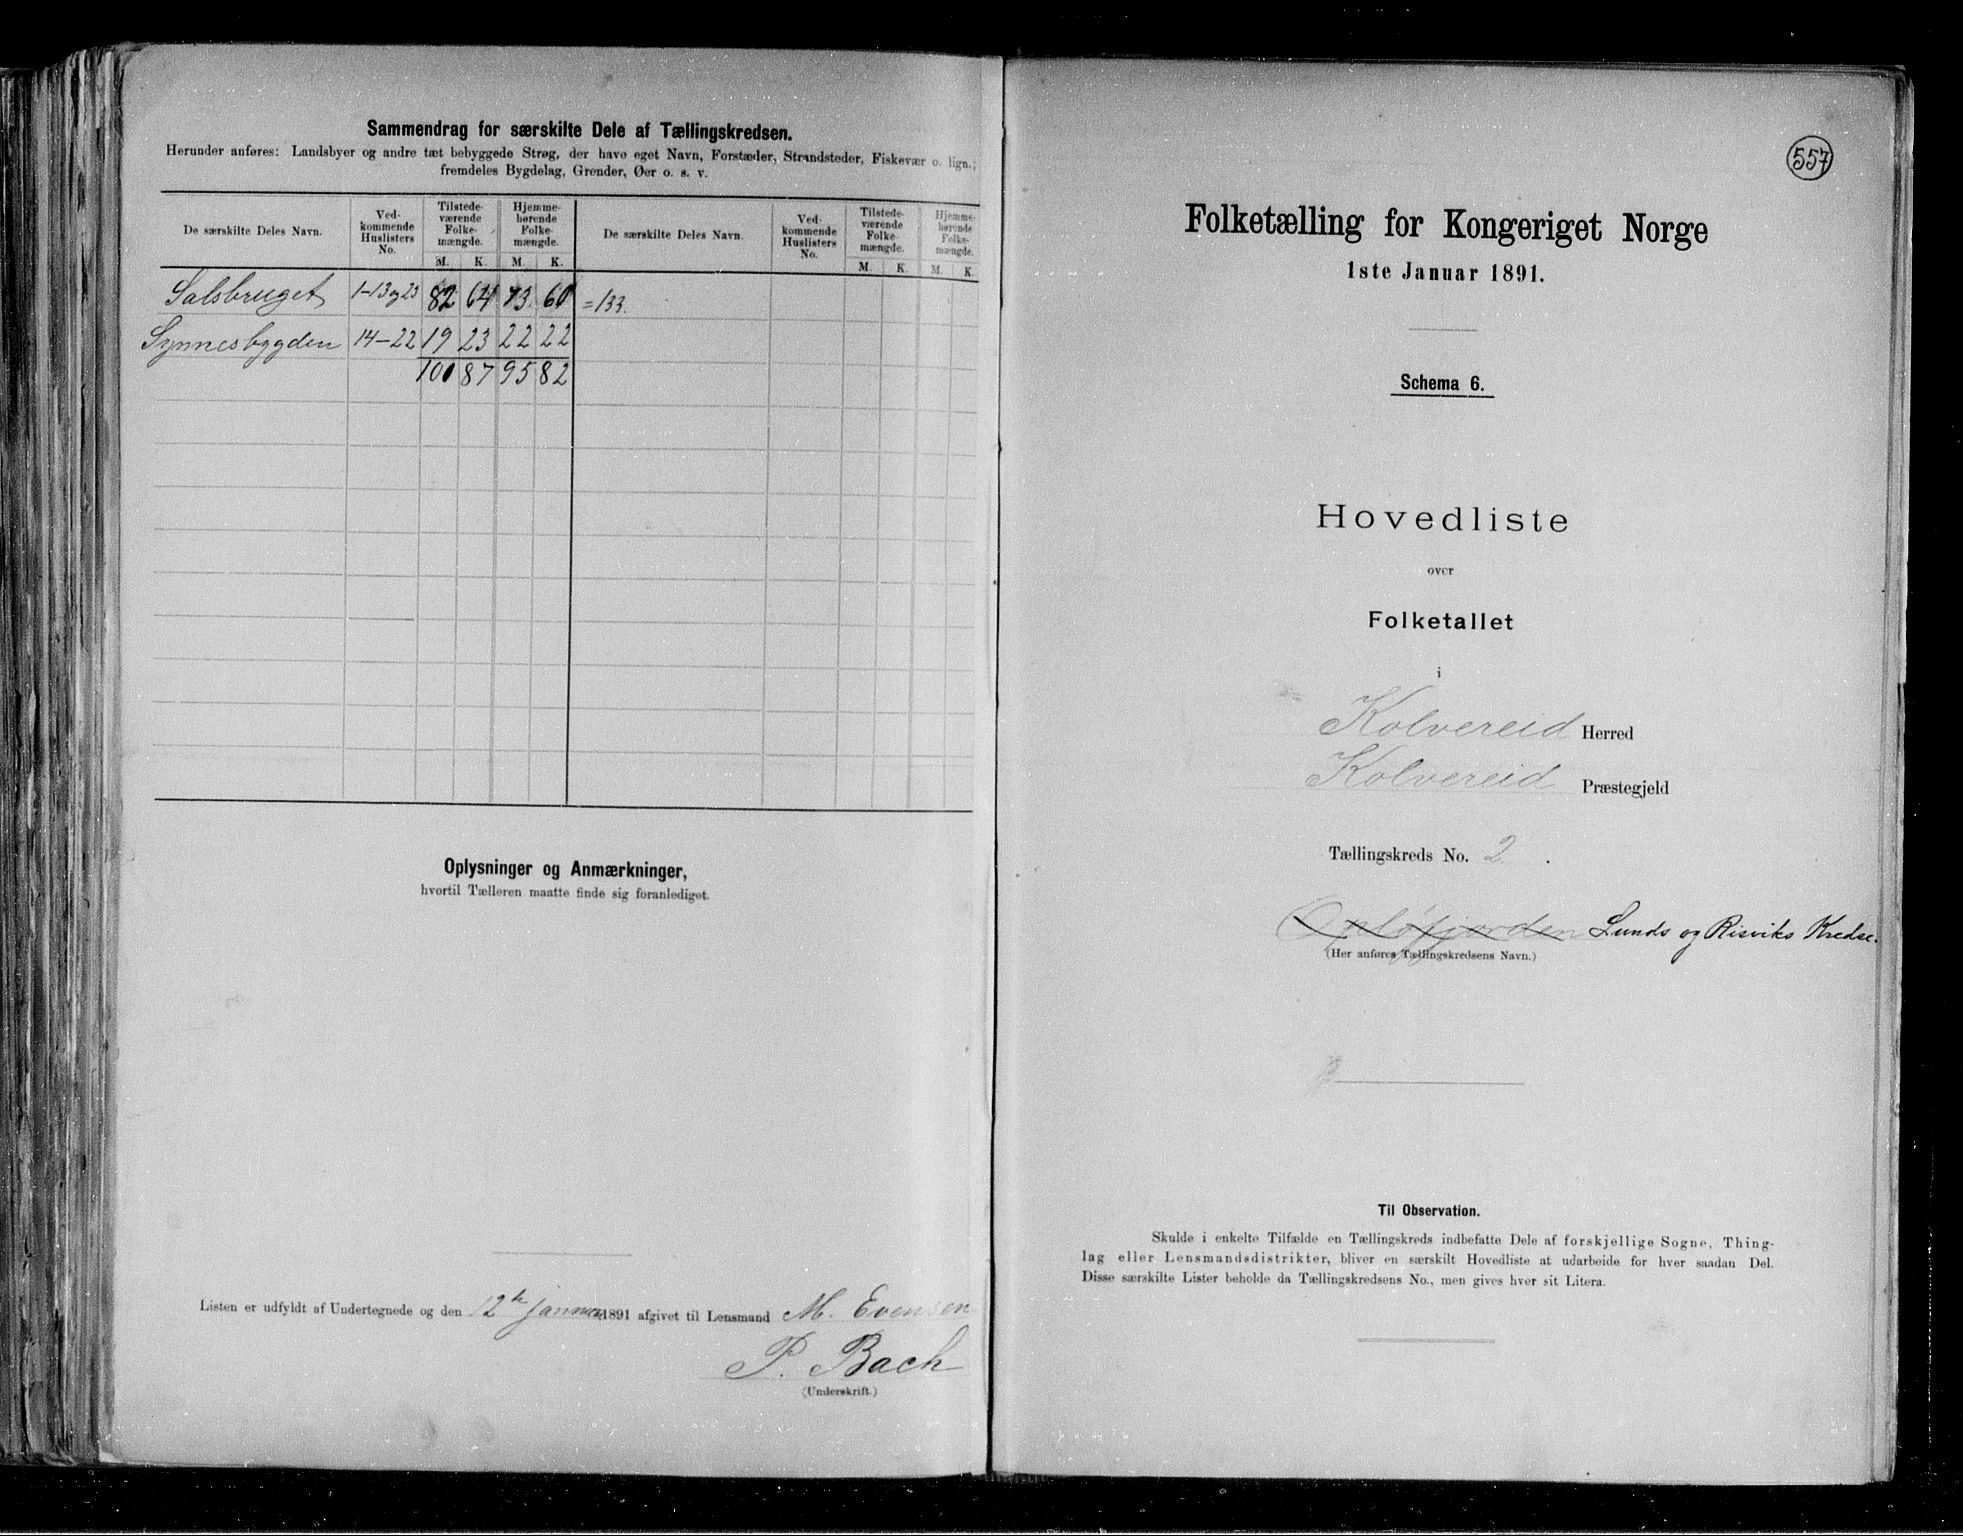 Sammendrag for særskilte Dele af Tællingskredsen.
Herunder anføres: Landsbyer og andre tæt bebyggede Strøg, der have eget Navn, Forstæder, Strandsteder, Fiskevær o. lign.;
fremdeles Bygdelag, Grender, Øer o. s. v.
De særskilte Deles Navn. Ved-kommende Huslisters No. Tilstede-værende Folke-mængde. Hjemme-hørende Folke-mængde. De særskilte Deles Navn. Ved-kommende Huslisters No. Tilstede-værende Folke-mængde. Hjemme-hørende Folke-mængde.
M. K. M. K. M. K. M. K.
Salsbruget 1-13 og 23 82 64 73 60 =133.
Synnesbygden 14-22 19 23 22 22
101 87 95 82
Oplysninger og Anmærkninger,
hvortil Tælleren maatte finde sig foranlediget.
Listen er udfyldt af Undertegnede og den 12te januar 1891 afgivet til Lensmand M. Evensen
P. Bach
(Underskrift.)
557
Folketælling for Kongeriget Norge
1ste Januar 1891.
Schema 6.
Hovedliste
over
Folketallet
i
Kolvereid Herred
Kolvereid Præstegjeld
Tællingskreds No. 2.
Opløfjorden Lunds og Risviks Kredse.
(Her anføres Tællingskredsens Navn.)
Til Observation.
Skulde i enkelte Tilfælde en Tællingskreds indbefatte Dele af forskjellige Sogne, Thing-
lag eller Lensmandsdistrikter, bliver en særskilt Hovedliste at udarbeide for hver saadan Del.
Disse særskilte Lister beholde da Tællingskredsens No., men gives hver sit Litera.